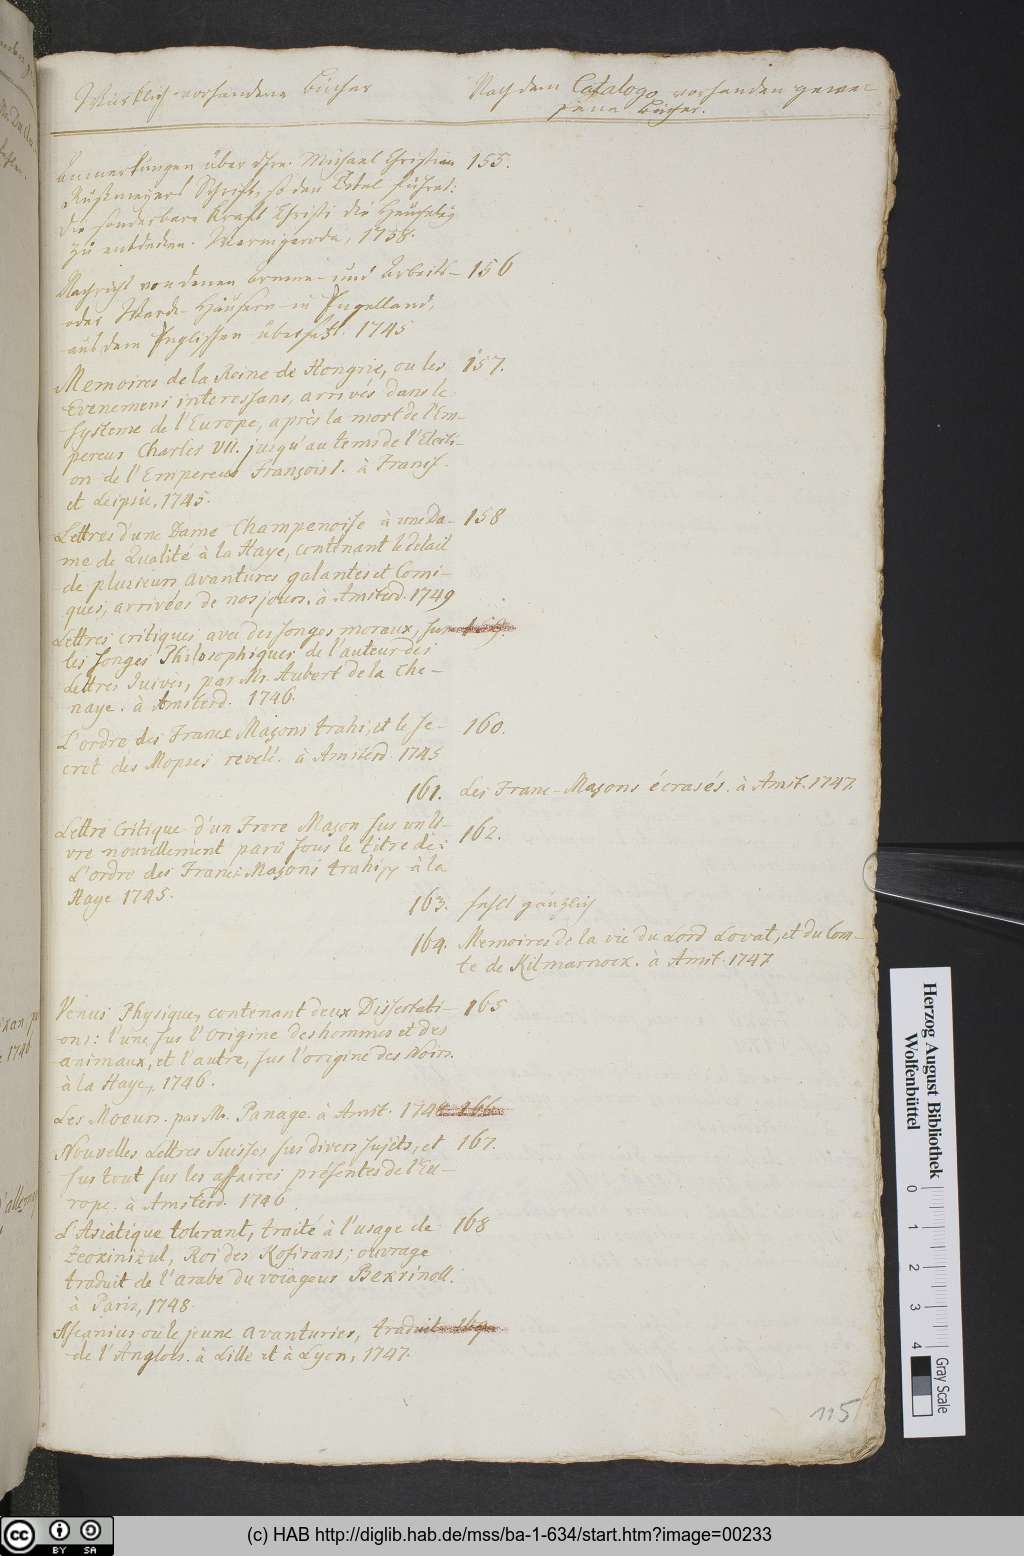 Würklich vorhandene Bücher
Nach dem Catalogo vorhanden gewe-
sene Bücher.
Anmerkungen über Ehrn. Michael Christian 155.
Rußmeyers Schrift, so den Titel führet:
die sonderbare Krafft Christi die
zu entdecken. Wernigeroda, 1738.
Nachricht von denen Armen- und Arbeits- 156
oder Werck-Häusern in Engelland,
aus dem Englischen übersetzt. 1745
Memoires de la Reine de Hongrie, ou les 157.
Evenemens interessans, arrivés dans le
systeme de l'Europe, après la mort de l'Em-
pereur Charles VII. jusqu'au tems de l'Elceti-
on de l'Empereur François I. à Francf.
et Leipsic, 1745.
Lettres d'une Dame Champenoise à une Da- 158
me de Qualité à la Haye, contenant le detail
de plusieurs avantures galantes et Comi-
ques, arrivées de nos jours. à Amsterd. 1749
Lettres critiques avec des songes moraux, sur 159.
les songes Philosophiques de l'auteur des
Lettres Juives, par Mr. Aubert de la Che-
naye. à Amsterd. 1746.
L'ordre des Francs Maçons trahi, et le Se- 160.
cret des Mopses revelé. à Amsterd. 1745
161. Les Franc-Maçons écrasés. à Amst. 1747.
Lettre Critique d'un Frere Maçon sur un li- 162.
vre nouvellement parû sous le titre de:
L'ordre des Francs Maçons trahi à la
Haye 1745.
163. fehlt gäntzlich
164. Memoires de la vie du Lord Lovat, et du Com-
te de Kilmarnock. à Amst. 1747
Venus Physique, contenant deux Dissertati- 165
ons: l'une sur l'origine des hommes et des
animaux, et l'autre, sur l'origine des Noirs.
à la Haye, 1746.
Les Moeurs. par Mr. Panage. à Amst. 1748. 166.
Nouvelles Lettres Suisses sur divers sujets, et 167.
surtout sur les affaires présentes de l'Eu-
rope. à Amsterd. 1746
L'Asiatique tolerant, traité à l'usage de 168
Zeokinizul, Roi des Kofirans; ouvrage
traduit de l'arabe du voïageur Bekrinoll.
à Paris, 1748.
Ascanius ou le jeune avanturier, traduit 169.
de l'Anglois. à Lille et à Lyon, 1747.
115
Herzog August Bibliothek
Wolfenbüttel
0 1 2 3 4
Gray Scale
cc BY SA
(c) HAB http://diglib.hab.de/mss/ba-1-634/start.htm?image=00233